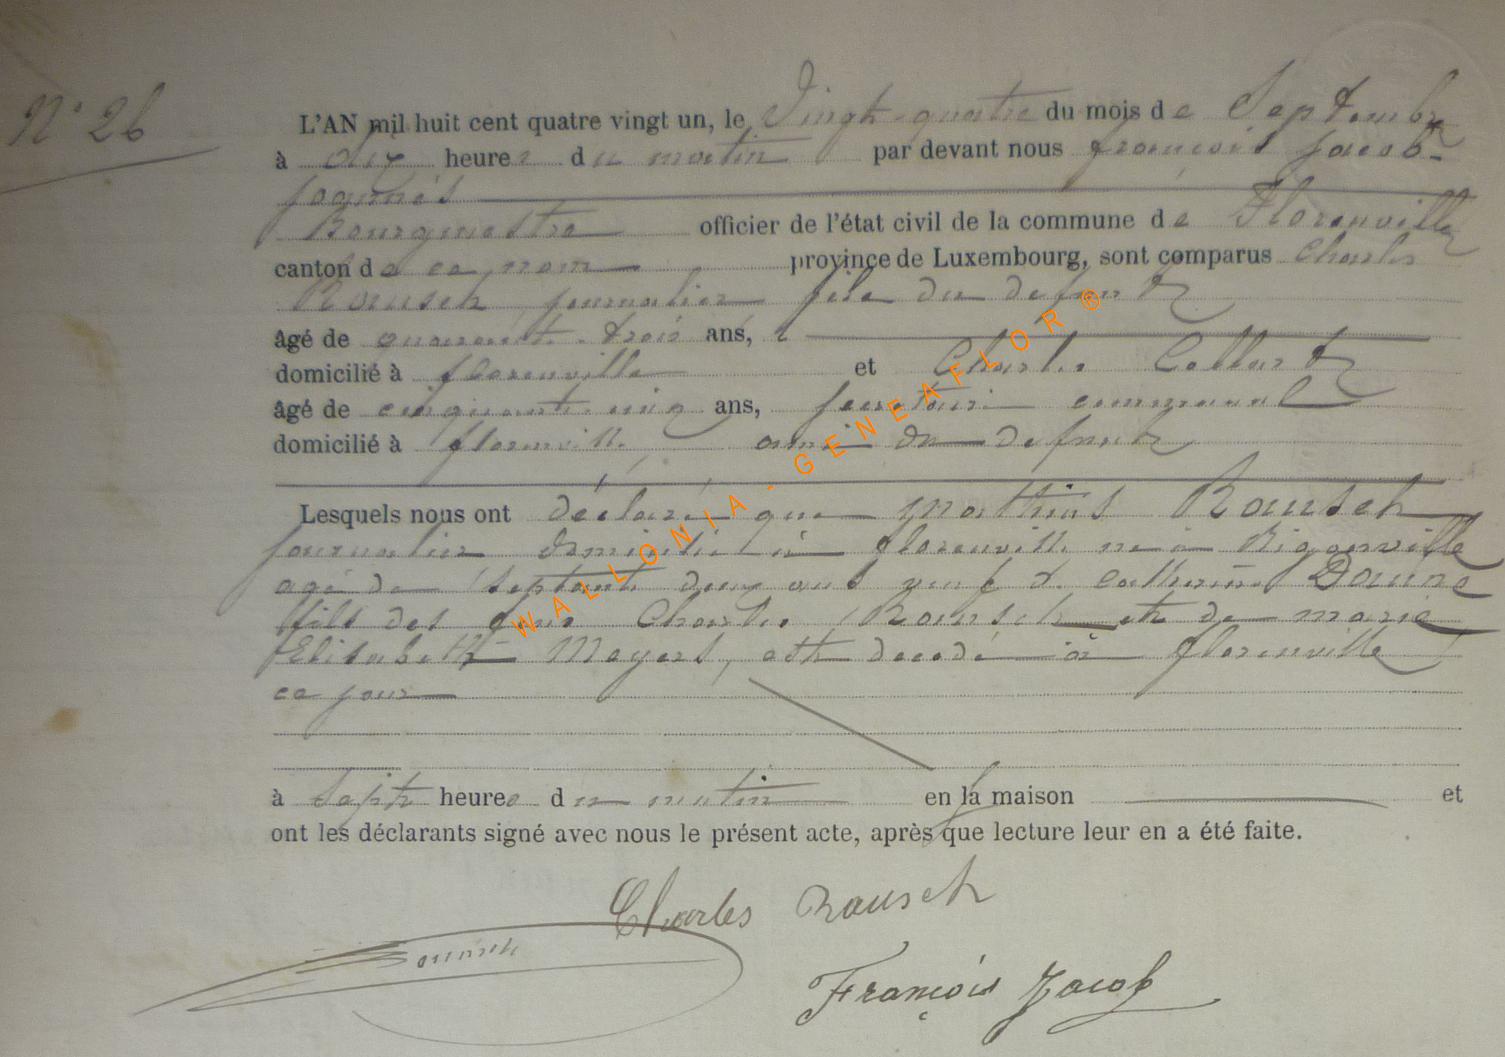 N° 26
L'AN mil huit cent quatre vingt un, le Vingt-quatre du mois de Septembre
à dix heures du matin par devant nous françois Jacob-
Jognnés
Bourgmestre officier de l'état civil de la commune de Florenville
canton de ce nom province de Luxembourg, sont comparus Charles
Rausch, journalier fils du defunt
âgé de quarante-trois ans,
domicilié à florenville et Charles Collart
âgé de cinquante cinq ans, secretaire communal
domicilié à florenville ami du defunt
Lesquels nous ont déclaré que Mathias Rausch
journalier domicilié à florenville né à Bigonville
agé de septante deux ans veuf de Catherine
fils des feus Charles Rausch et de marie
Elisabeth Meyers, est decedé à florenville
ce jour
à Sept heures du matin en la maison et
ont les déclarants signé avec nous le présent acte, après que lecture leur en a été faite.
Charles Rausch
François Jacob
WALLONIA - GENEAFLOR ®